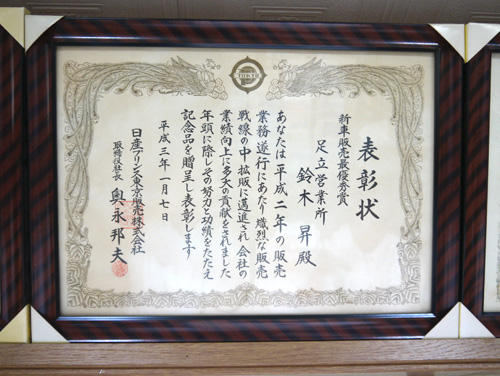 表彰状
新車販売最優秀賞
足立営業所
鈴木昇殿
あなたは平成二年の販売
業務遂行にあたり熾烈な販売
戦線の中拡販に邁進され会社の
業績向上に多大の貢献をされました
年頭に際しその努力と功績をたたえ
記念品を贈呈し表彰します
平成三年一月七日
日産プリンス東京販売株式会社
取締役社長 奥永邦夫